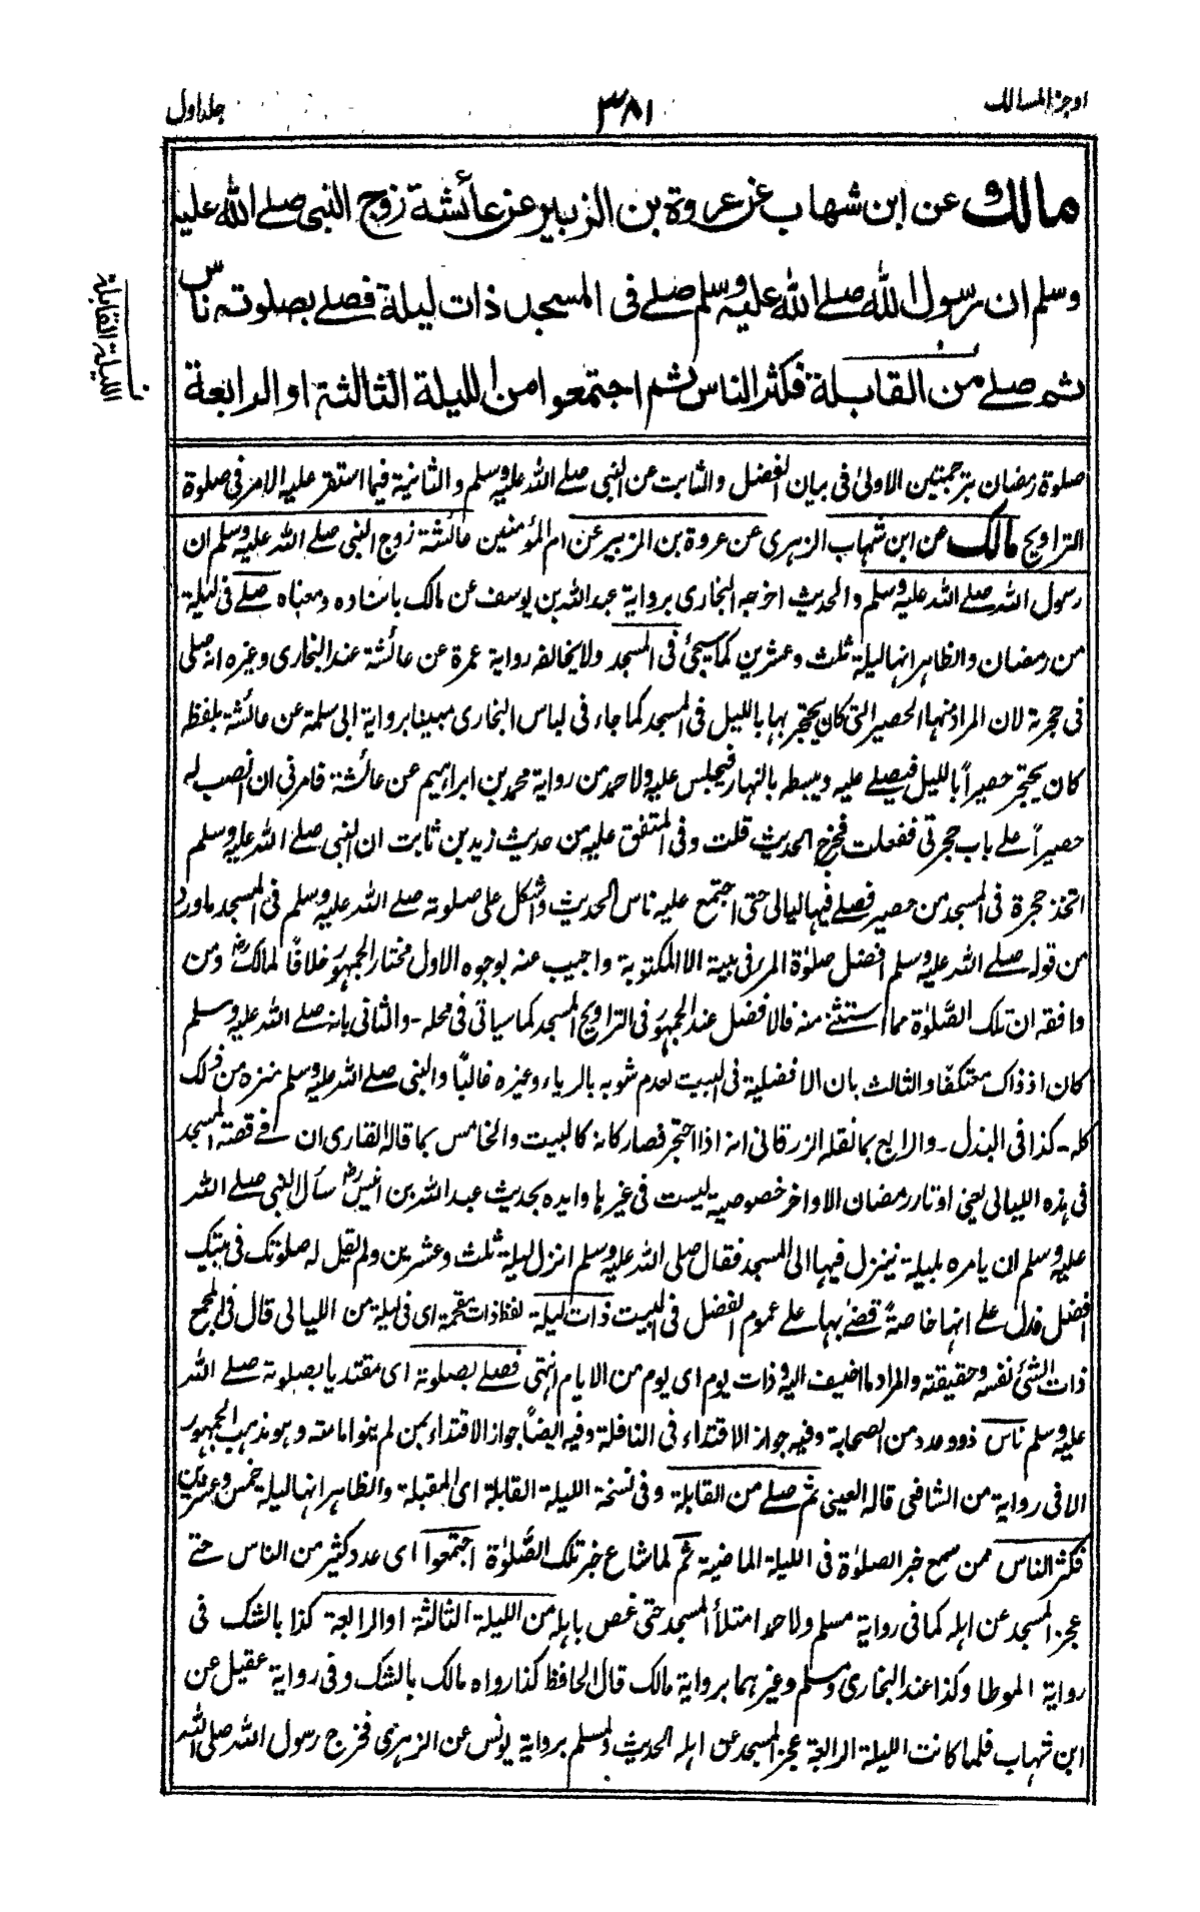 اوجز المسالك
۳۸۱
جلد اول
مالك عن ابن شهاب عن عروة بن الزبير عن عائشة زوج النبى صلے الله عليه
وسلم ان رسول الله صلے الله عليه وسلم صلے فى المسجد ذات ليلة فصلے بصلوته ناس
ثم صلے من القابلة فكثر الناس ثم اجتمعوا من الليلة الثالثة او الرابعة
الليلة القابلة
صلوة رمضان بترجمتين الاولىٰ فى بيان الفضل والثابت عن النبى صلے الله عليه وسلم والثانية فيما استقر عليه الامر فى صلوة
التراويح مالك عن ابن شهاب الزهرى عن عروة بن الزبير عن ام المؤمنين عائشة زوج النبى صلے الله عليه وسلم ان
رسول الله صلے الله عليه وسلم والحديث اخرجه البخارى برواية عبد الله بن يوسف عن مالك باسناده ومعناه صلے فى ليلة
من رمضان والظاهر انها ليلة ثلث وعشرين كما سيجئ فى المسجد ولا يخالفه رواية عمرة عن عائشة عند البخارى وغيره انه صلى
فى حجرته لان المراد منها الحصير التى كان يحتجر بها بالليل فى المسجد كما جاء فى لباس البخارى مبينا برواية ابى سلمة عن عائشة بلفظ
كان يحتجر حصيراً بالليل فيصلے عليه ويبسطه بالنهار فيجلس عليه ولاحمد من رواية محمد بن ابراهيم عن عائشة فامرنى ان انصب له
حصيراً علے باب حجرتى ففعلت فخرج الحديث قلت وفى المتفق عليه من حديث زيد بن ثابت ان النبى صلے الله عليه وسلم
اتخذ حجرة فى المسجد من حصير فصلے فيها ليالى حتى اجتمع عليه ناس الحديث واشكل على صلوته صلے الله عليه وسلم فى المسجد ماورد
من قوله صلے الله عليه وسلم افضل صلوٰة المرء فى بيته الا المكتوبة واجيب عنه بوجوه الاول مختار الجمهور خلافاً لمالكؒ ومن
وافقه ان تلك الصَّلوٰة مما استثنے منه فالافضل عند الجمهور فى التراويح المسجد كما سياتى فى محله - والثانى بانه صلے الله عليه وسلم
كان اذ ذاك معتكفًا والثالث بان الافضلية فى البيت لعدم شوبه بالرياء وغيره غالباً والنبى صلے الله عليه وسلم منزه من ذلك
كله - كذا فى البذل - والرابع بما نقله الزرقانى انه اذا احتجر فصار كانه كالبيت والخامس بما قاله القارى ان فے قصة المسجد
فى هذه الليالى يعنى اوتار رمضان الاواخر خصوصية ليست فى غيرها وايده بحديث عبد الله بن انيسؓ سأل النبى صلے الله
عليه وسلم ان يامره بليلة ينزل فيها الى المسجد فقال صلى الله عليه وسلم انزل ليلة ثلث وعشرين ولم يقل له صلوتك فى بيتك
افضل فدل علے انها خاصةً قضے بها علے عموم الفضل فى البيت ذات ليلة لفظ ذات مقحمة اى فى ليلة من الليالى قال فى المجمع
ذات الشئ نفسه وحقيقته والمراد ما اضيف اليه وذات يوم اى يوم من الايام انتهى فصلے بصلوته اى مقتديا بصلوته صلے الله
عليه وسلم ناس ذوو عدد من الصحابة وفيه جواز الاقتداء فى النافلة وفيه ايضاً جواز الاقتداء بمن لم ينو امامته وهو مذهب الجمهور
الا فى رواية من الشافعى قاله العينى ثم صلے من القابلة وفى نسخة الليلة القابلة اى المقبلة والظاهر انها ليلة خمس وعشرين
فكثر الناس ممن سمع خبر الصلوٰة فى الليلة الماضية ثم لما شاع خبر تلك الصَّلوٰة اجتمعوا اى عدد كثير من الناس حتے
عجز المسجد عن اهله كما فى رواية مسلم ولاحمد امتلأ المسجد حتى غص باهله من الليلة الثالثة او الرابعة كذا بالشك فى
رواية الموطا وكذا عند البخارى ومسلم وغيرهما برواية مالك قال الحافظ كذا رواه مالك بالشك وفى رواية عقيل عن
ابن شهاب فلما كانت الليلة الرابعة عجز المسجد عن اهله الحديث ولمسلم برواية يونس عن الزهرى فخرج رسول الله صلى الله